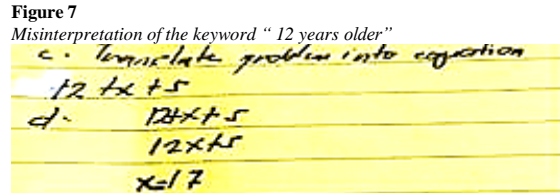 Figure 7
Misinterpretation of the keyword “ 12 years older”
c. Translate problem into equation
12 + x + 5
d. 12+x+5
12x+5
x=17